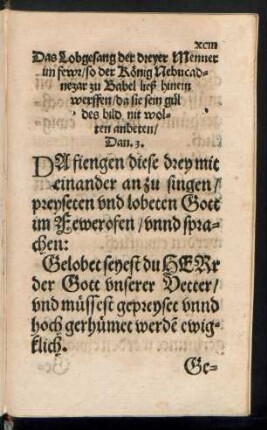 xcm
Das Lobgesang der dreyer Menner
im fewr/so der König Nebucad-
nezar zu Babel ließ hinein
werffen/da sie sein gül
des bild nit wol-
ten anbeten/
Dan. 3.
DA fiengen diese drey mit
einander an zu singen/
preyseten vnd lobeten Gott
im Fewerofen/vnnd spra-
chen:
Gelobet seyest du HERr
der Gott vnserer Vetter/
vnd müssest gepreyset vnnd
hoch gerhümet werdē ewig-
klich.
Ge-